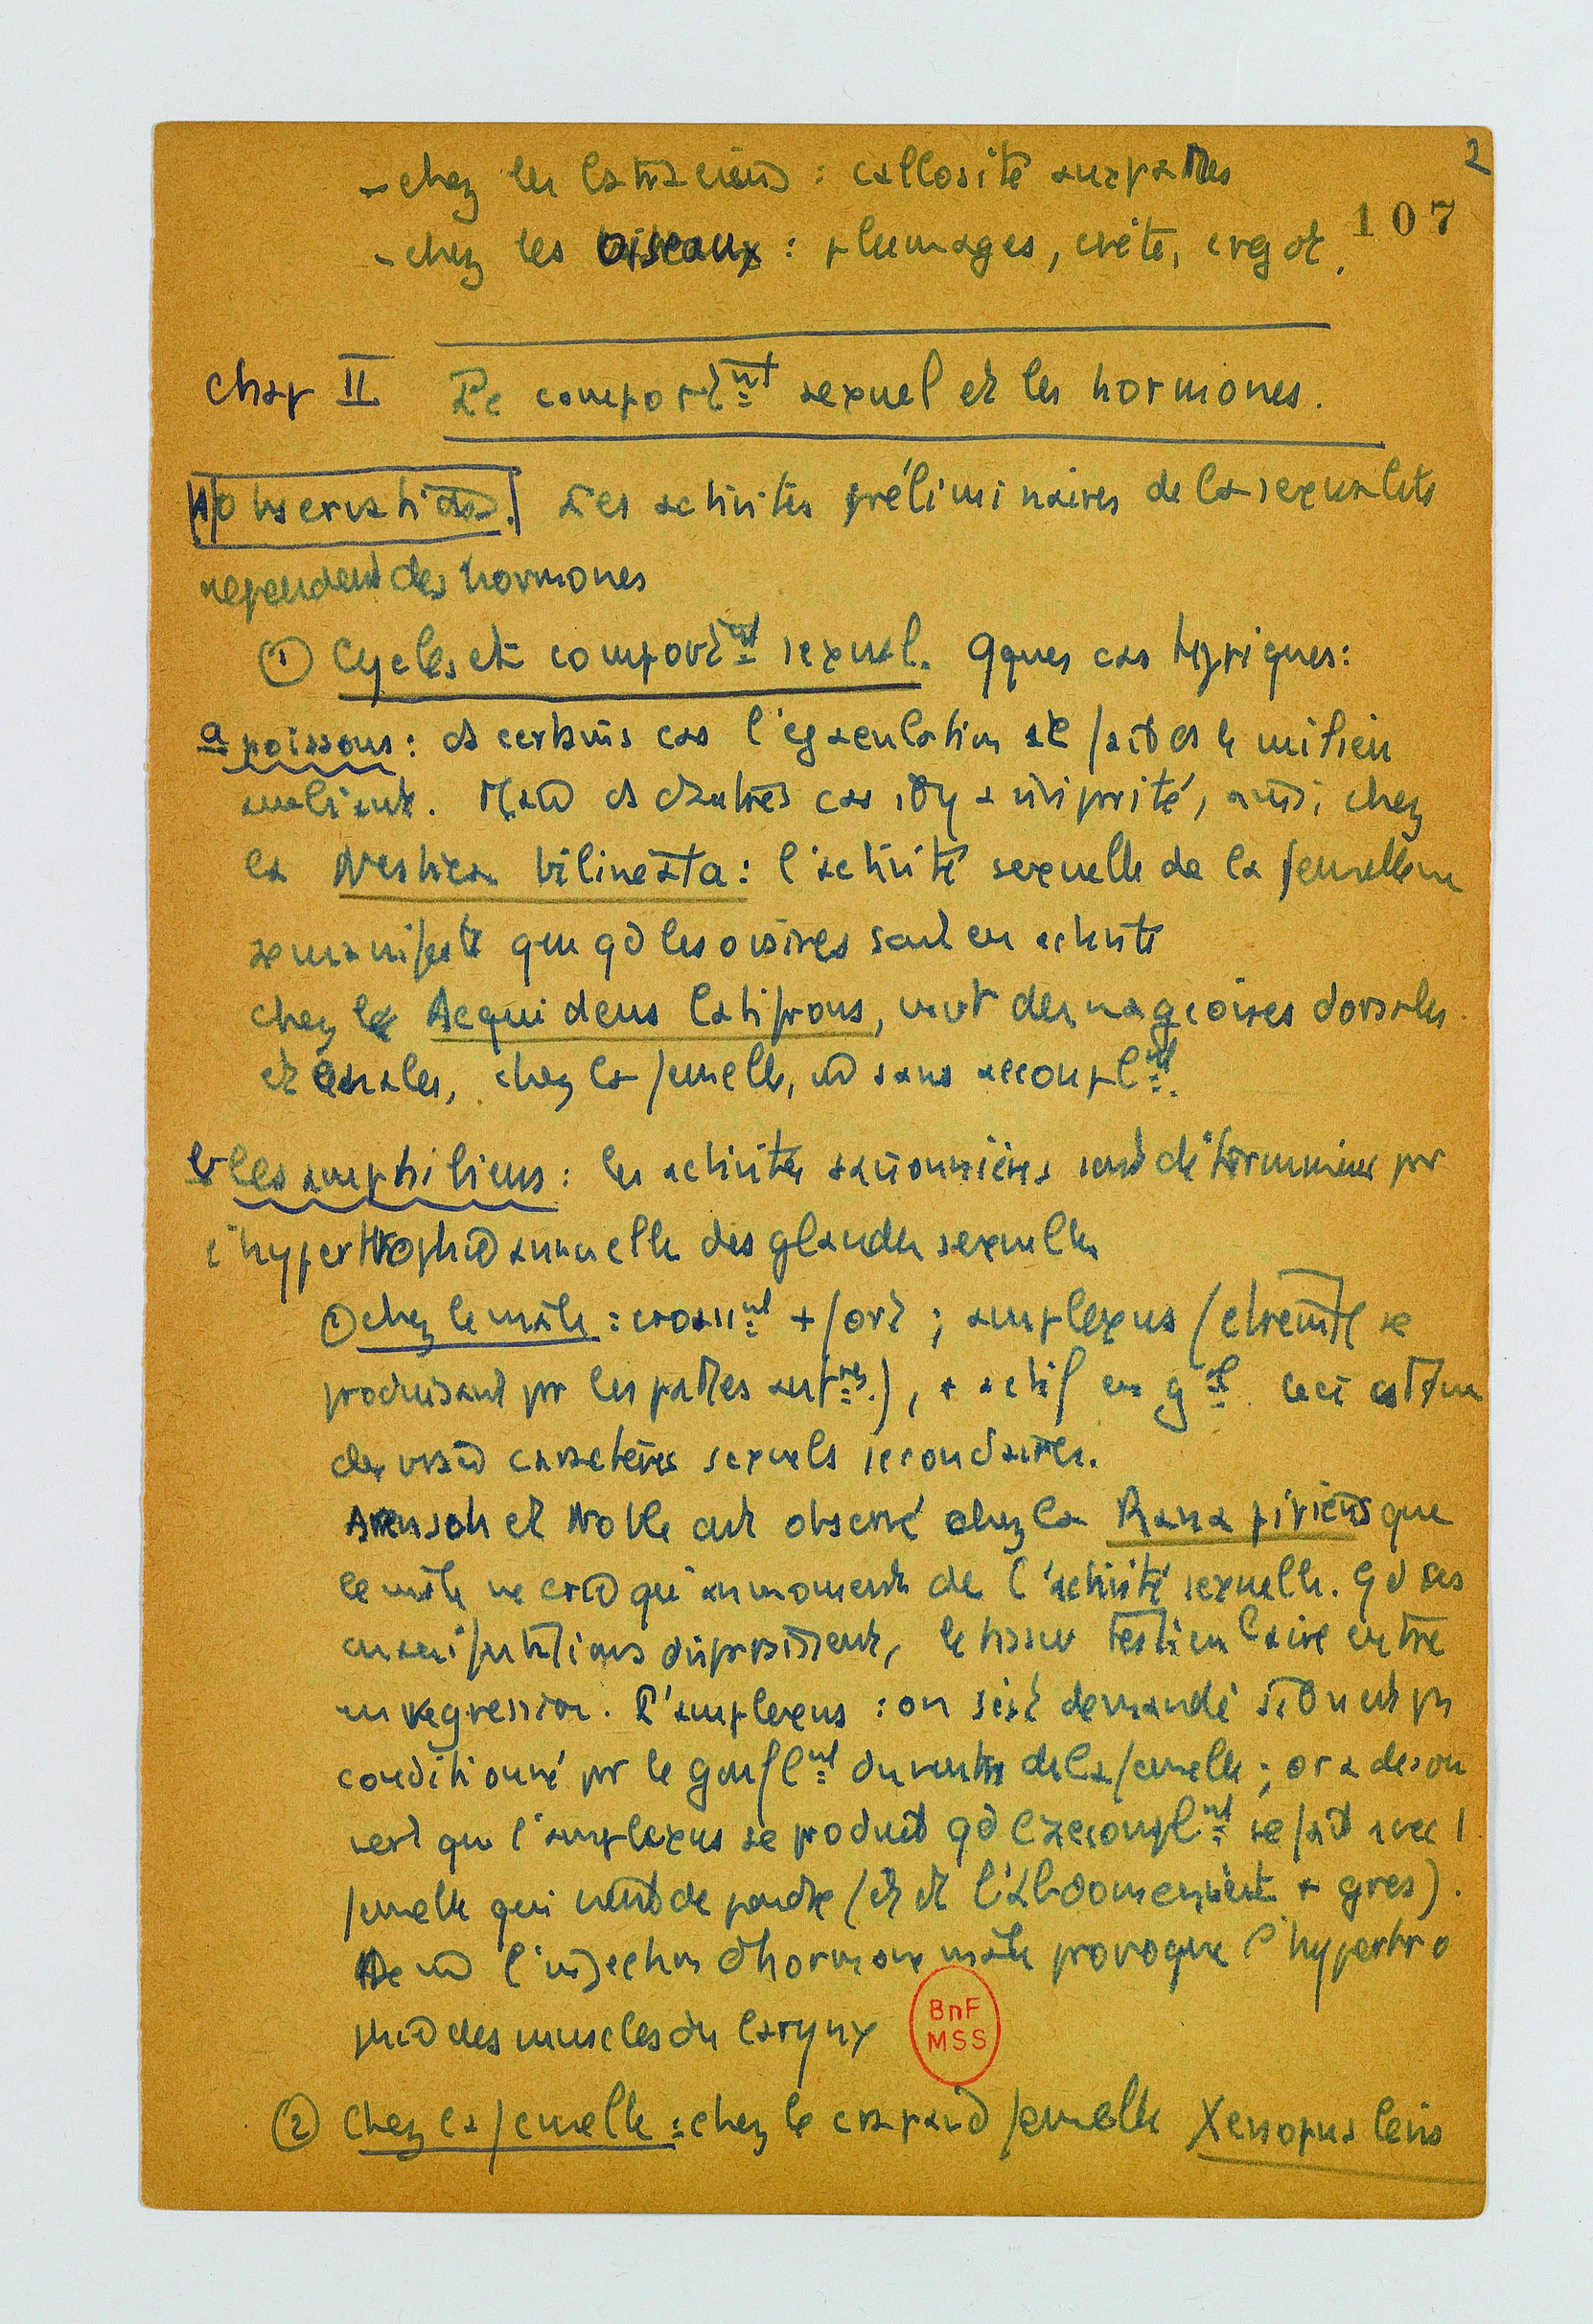 2
- chez les batraciens : callosité aux pattes
107
- chez les oiseaux : plumages, crête, ergot.
Chap II Le comportmt sexuel et les hormones.
A) Observations. Les activités préliminaires de la sexualité
dépendent des hormones
① Cycles et comportmt sexuel. Qques cas typiques :
a poissons : ds certains cas l'éjaculation se fait ds le milieu
ambiant. Mais ds d'autres cas il y a viviparité, ainsi chez
la bilineata : l'activité sexuelle de la femelle ne
se manifeste que qd les ovaires sont en activité
chez le Aequidens latifrons, des nageoires dorsales
et anales, chez la femelle, sans accouplmt.
b les amphibiens : les activités saisonnières sont déterminées par
l'hypertrophie annuelle des glandes sexuelles
① chez le mâle : croassmt + fort ; amplexus (étreinte se
produisant par les pattes antres.), + actif en gal. ceci est un
des vrais caractères sexuels secondaires.
Aronson et Noble ont observé chez la Rana pipiens que
le mâle ne croasse qu'au moment de l'activité sexuelle. Qd ces
manifestations disparaissent, le tissu testiculaire entre
en regression. L'amplexus : on s'est demandé s'il n'est pas
conditionné par le gonflmt du ventre de la femelle ; or a décou
vert que l'amplexus se produit qd l'accouplmt se fait avec 1
femelle qui vient de pondre (et dt l'abdomen n'est + gros).
l'injection d'hormone mâle provoque l'hypertro
phie des muscles du larynx
BnF
MSS
② Chez la femelle : chez le crapaud femelle Xenopus levis